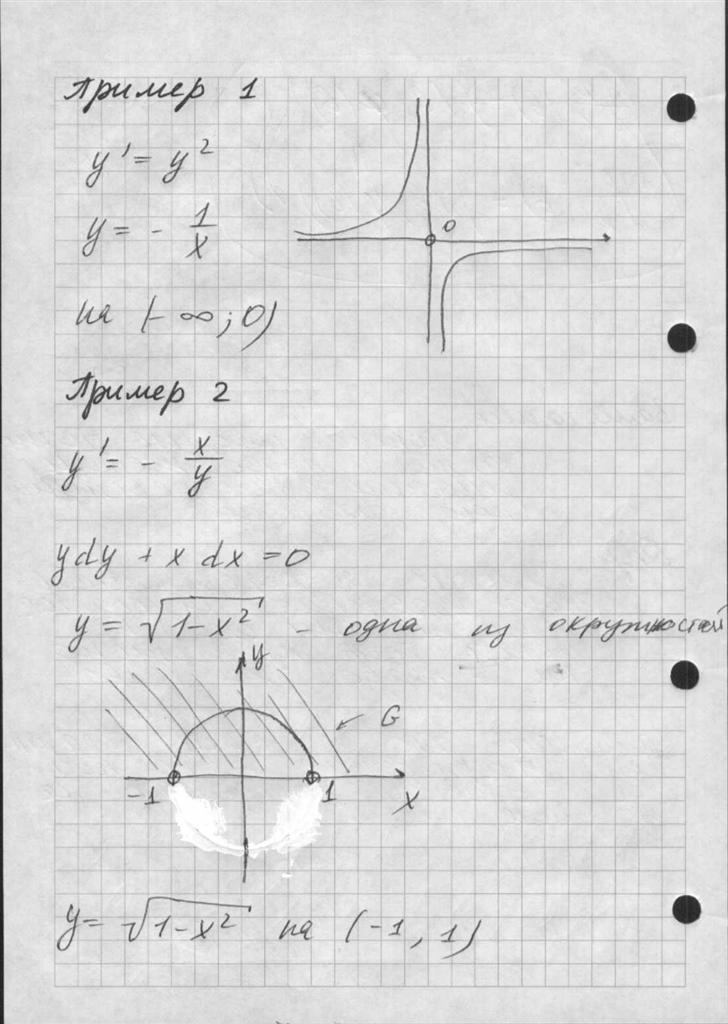 Пример 1
y' = y²
y = - 1/x
0
на (-∞; 0)
Пример 2
y' = - x/y
y dy + x dx = 0
y = √(1-x²) - одна из окружностей
y
G
-1
1
x
y = √(1-x²) на (-1, 1)